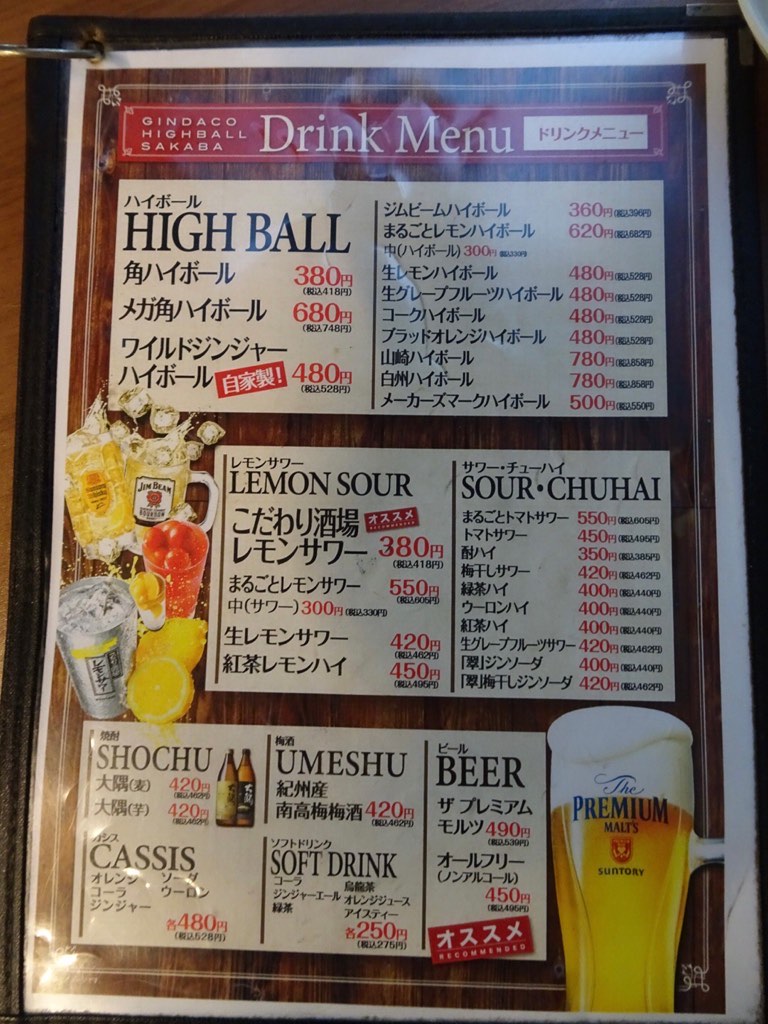 GINDACO
HIGHBALL
SAKABA
Drink Menu
ドリンクメニュー
ハイボール
HIGH BALL
角ハイボール 380円
(税込418円)
メガ角ハイボール 680円
(税込748円)
ワイルドジンジャー
ハイボール 自家製! 480円
(税込528円)
ジムビームハイボール 360円(税込396円)
まるごとレモンハイボール 620円(税込682円)
中(ハイボール) 300円 (税込330円)
生レモンハイボール 480円(税込528円)
生グレープフルーツハイボール 480円(税込528円)
コークハイボール 480円(税込528円)
ブラッドオレンジハイボール 480円(税込528円)
山崎ハイボール 780円(税込858円)
白州ハイボール 780円(税込858円)
メーカーズマークハイボール 500円(税込550円)
JIM BEAM
BOURBON
レモンサワー
LEMON SOUR
こだわり酒場 オススメ
RECOMMENDED
レモンサワー 380円
(税込418円)
まるごとレモンサワー 550円
(税込605円)
中(サワー) 300円 (税込330円)
生レモンサワー 420円
(税込462円)
紅茶レモンハイ 450円
(税込495円)
サワー・チューハイ
SOUR・CHUHAI
まるごとトマトサワー 550円(税込605円)
トマトサワー 450円(税込495円)
酎ハイ 350円(税込385円)
梅干しサワー 420円(税込462円)
緑茶ハイ 400円(税込440円)
ウーロンハイ 400円(税込440円)
紅茶ハイ 400円(税込440円)
生グレープフルーツサワー 420円(税込462円)
「翠」ジンソーダ 400円(税込440円)
「翠」梅干しジンソーダ 420円(税込462円)
焼酎
SHOCHU
大隅(麦) 420円
(税込462円)
大隅(芋) 420円
(税込462円)
梅酒
UMESHU
紀州産
南高梅梅酒 420円
(税込462円)
ビール
BEER
ザ プレミアム
モルツ 490円
(税込539円)
オールフリー
(ノンアルコール)
450円
(税込495円)
オススメ
RECOMMENDED
カシス
CASSIS
オレンジ ソーダ
コーラ ウーロン
ジンジャー
各480円
(税込528円)
ソフトドリンク
SOFT DRINK
コーラ 烏龍茶
ジンジャーエール オレンジジュース
緑茶 アイスティー
各250円
(税込275円)
The
PREMIUM
MALT'S
SUNTORY